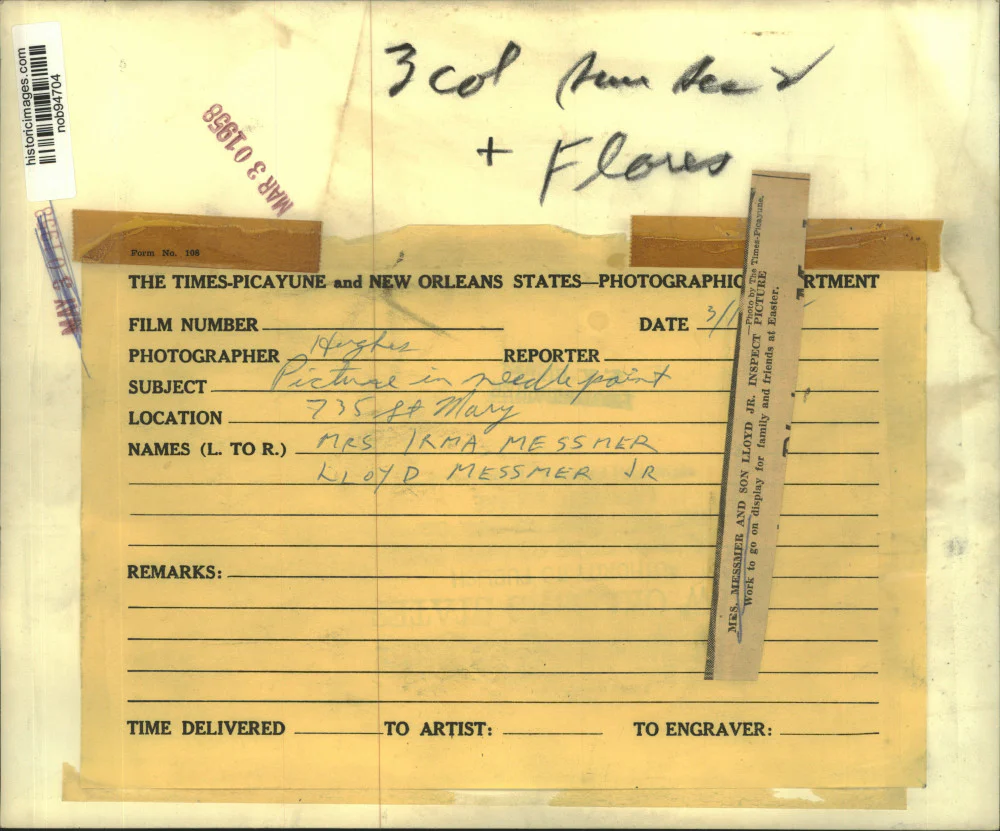 historicimages.com
nob94704
3 col
+ Flores
MAR 3 0 1958
Form No. 108
THE TIMES-PICAYUNE and NEW ORLEANS STATES—PHOTOGRAPHIC RTMENT
FILM NUMBER
DATE 3/1
PHOTOGRAPHER Hughes
REPORTER
SUBJECT Picture in needlepoint
LOCATION 735 St Mary
NAMES (L. TO R.) MRS IRMA MESSMER
LLOYD MESSMER JR
REMARKS:
TIME DELIVERED TO ARTIST: TO ENGRAVER:
—Photo by The Times-Picayune.
MRS. MESSMER AND SON LLOYD JR. INSPECT PICTURE
Work to go on display for family and friends at Easter.